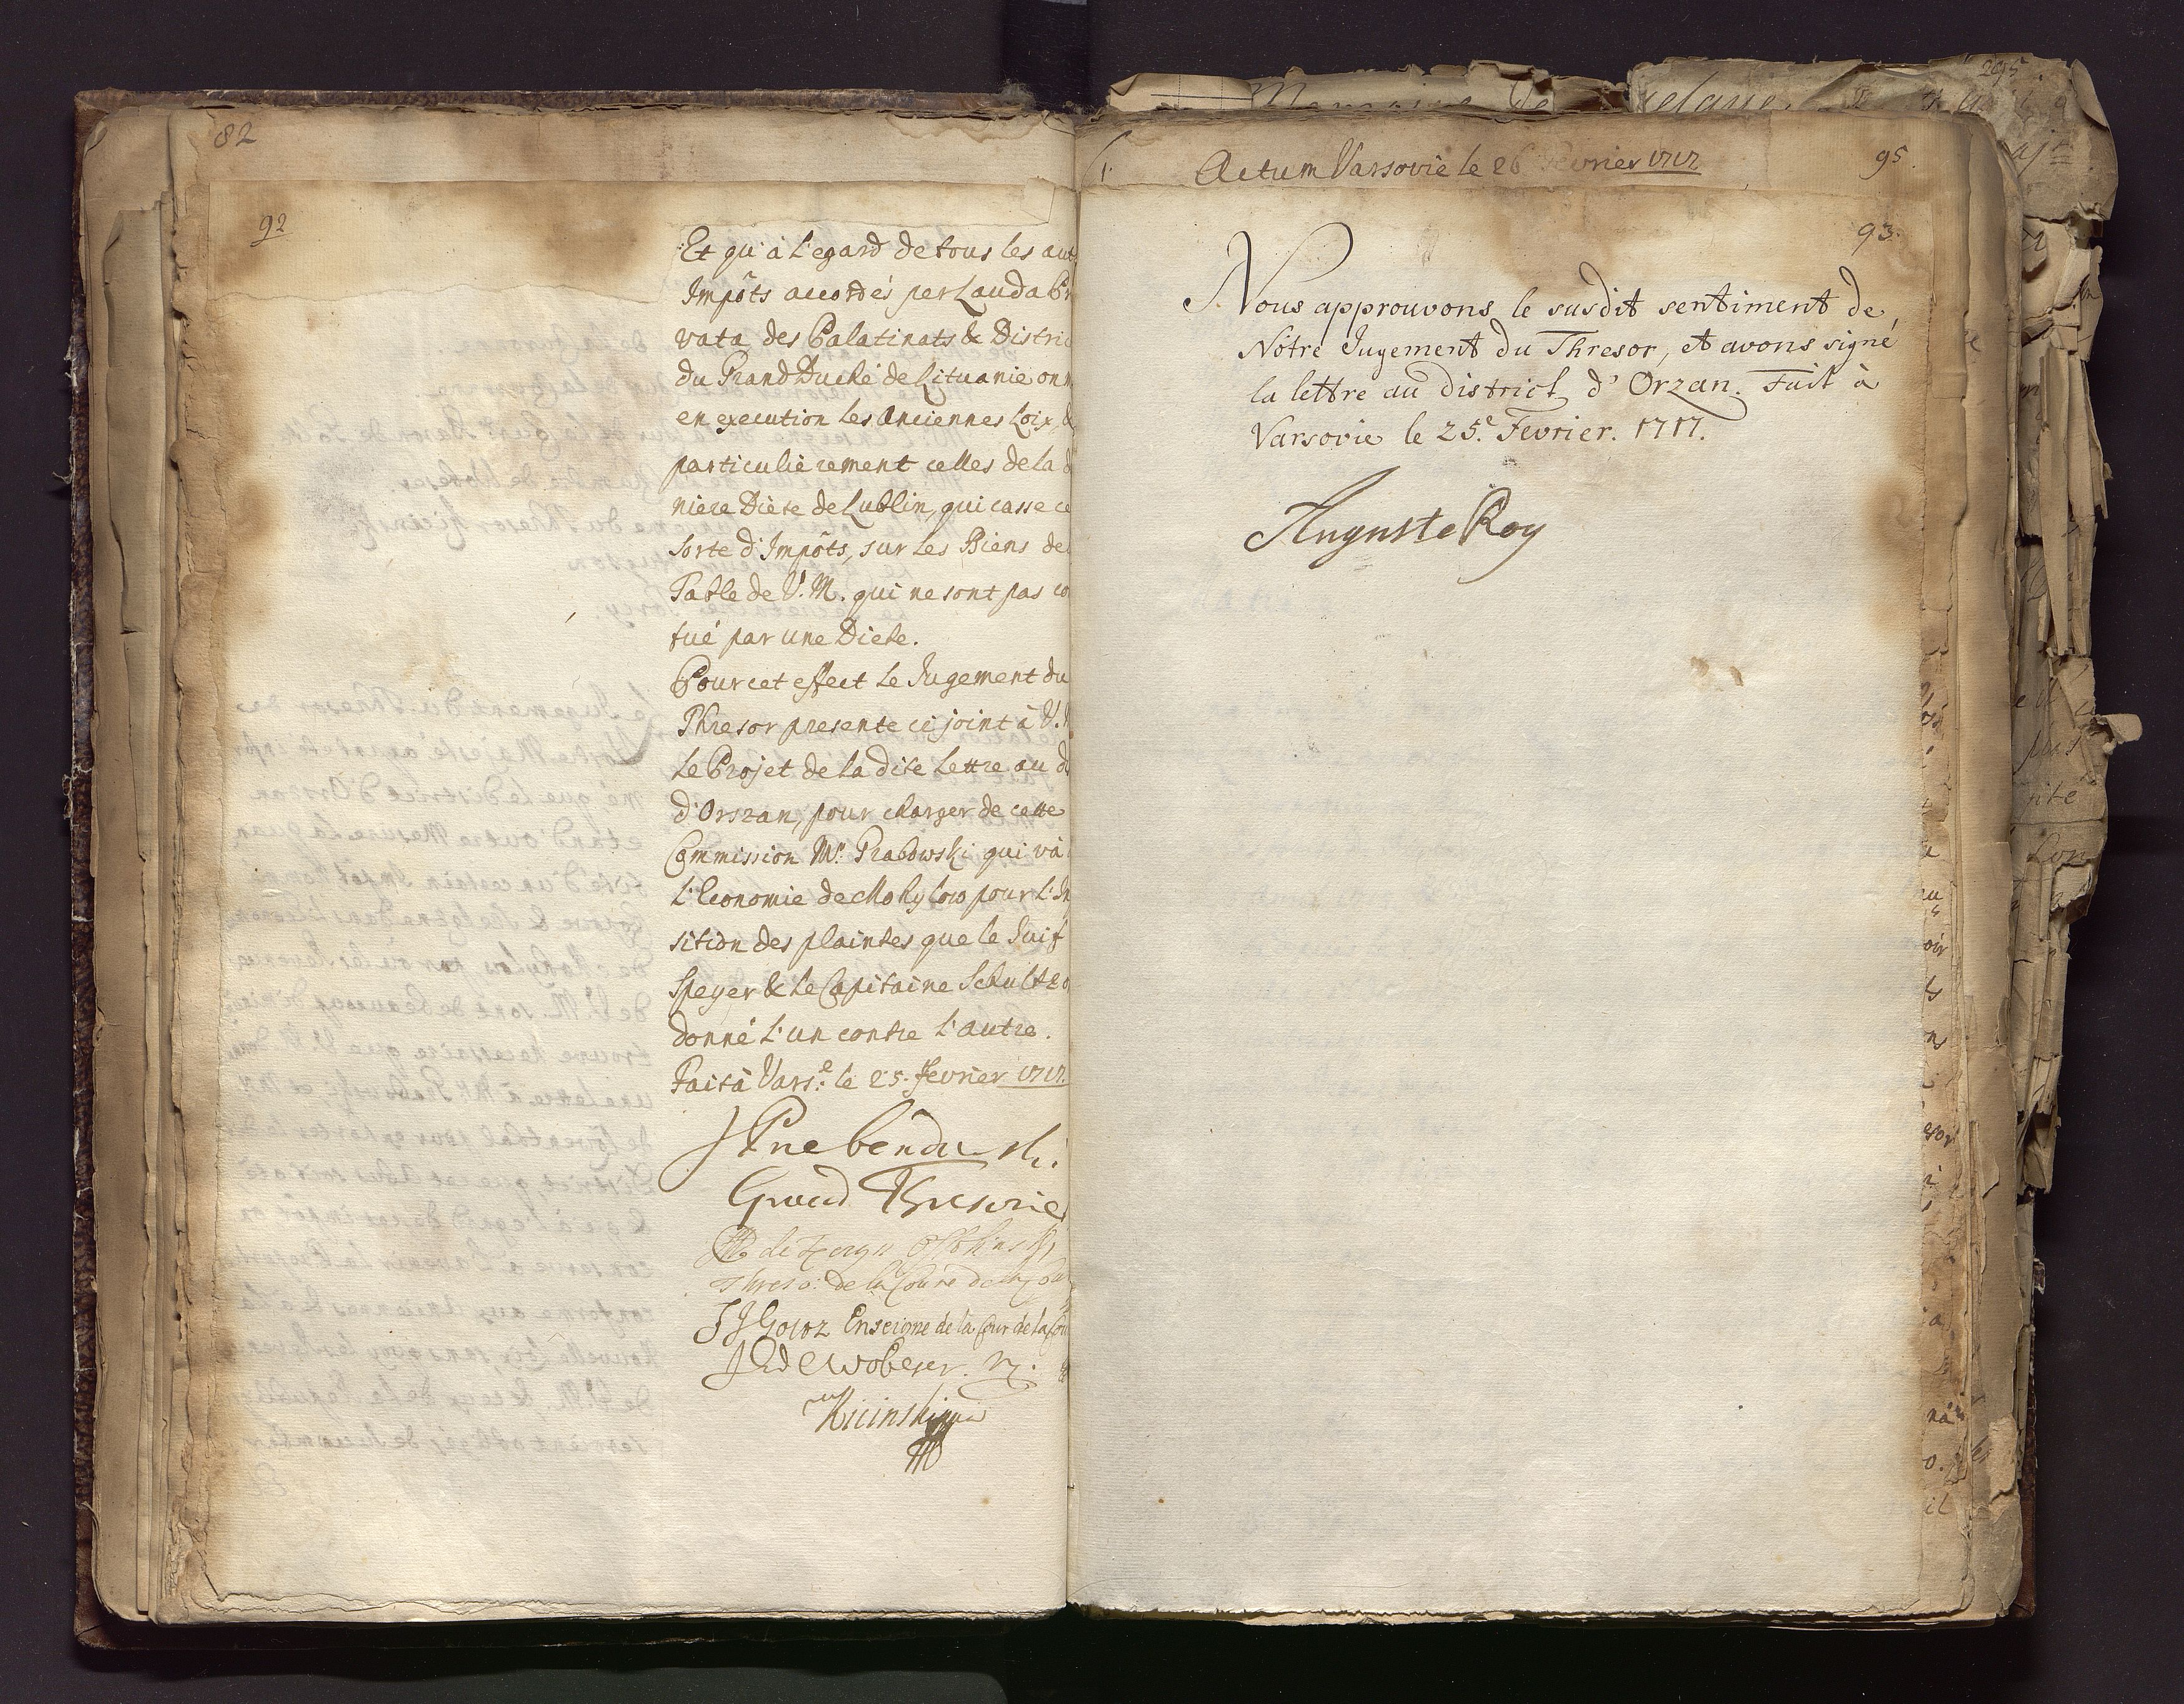 82
92
Et qu'à l'egard de tous les aut
Impôts accordés per Lauda Pr
vata des Palatinats & Distric
du Grand Duché de Lituanie on m
en execution les Anciennes Loix, &
particulierement celles de la d
niere Diète de Lublin, qui casse ce
sorte d'Impôts, sur les Biens de
Table de V. M. qui ne sont pas co
tué par une Diete.
Pour cet effect le Jugement du
Thresor presente ci joint à V.
le Projet de la dite lettre au d
d'Orszan, pour charger de cette
Commission Mr. Grabowski qui và
l'Economie de Mohylow pour l'In
sition des plaintes que le Juif
Speyer & le Capitaine Schultz o
donné l'un contre l'autre.
Fait à Vars.e le 25. fevrier 1717.
Grand Thresorie
Thresor: de la Cour de la Cou
Goltz Enseigne de la Cour de la Cou
de Wobeser.
Kicinski
1.
Actum Varsovie le 26 Fevrier 1717
95.
93.
Nous approuvons le susdit sentiment de
Nôtre Jugement du Thresor, et avons signé
la lettre au district d'Orzan. Fait à
Varsovie le 25.e Fevrier. 1717.
Auguste Roy
205